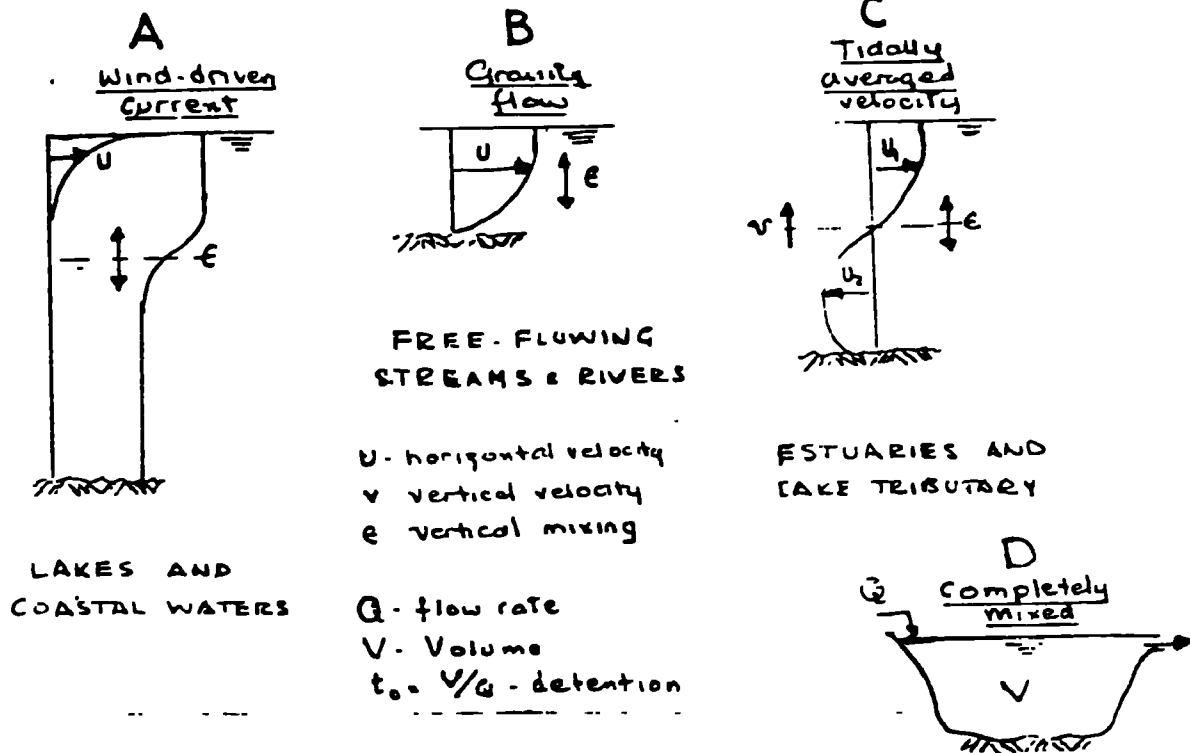 A
Wind-driven
current
U
ϵ
LAKES AND
COASTAL WATERS
B
Gravity
flow
U
ϵ
FREE-FLOWING
STREAMS & RIVERS
U - horizontal velocity
v vertical velocity
e vertical mixing
Q - flow rate
V - Volume
t₀ = V/Q - detention
C
Tidally
averaged
velocity
U₁
v
ϵ
U₂
ESTUARIES AND
LAKE TRIBUTARY
D
Completely
mixed
Q
V